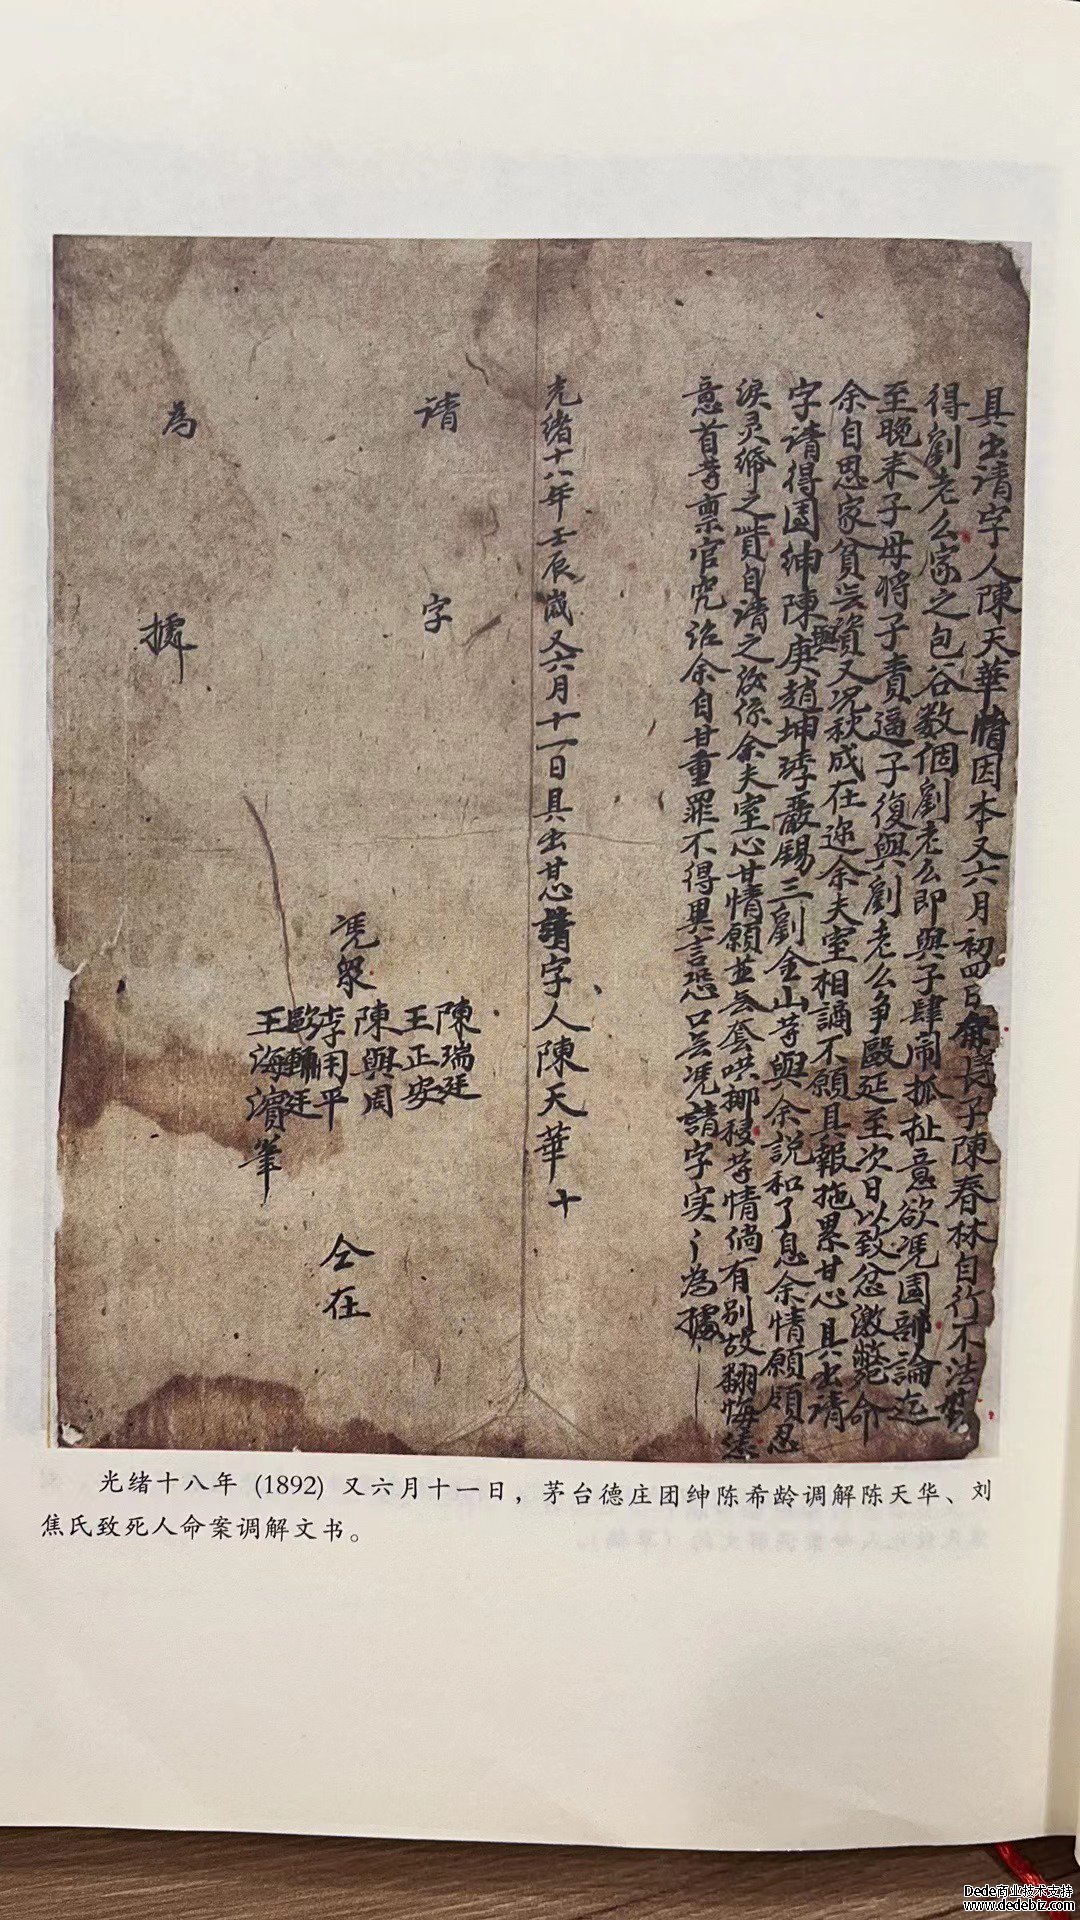 具出請字人陳天華情因本又六月初四日余長子陳春林自行不法
得劉老么家之包谷数個劉老么即與子肆鬧抓扯意欲凭團部論迄
至晚来子母将子責逼子復與劉老么争毆延至次日以致忿激斃命
余自思家貧無資又况秋成在迩余夫室相謫不願具報拖累甘心具出請
字請得團紳陳庚趙坤李嚴錫三劉金山等與余説和了息余情願領忍
淚灵縡之貲自請之後係余夫室心甘情願並無套哄挪移等情倘有别故翻悔
意首等禀官究治余自甘重罪不得異言恐口無凭請字実〻為據
光绪十八年壬辰歲又六月十一日具出甘心請字人陳天華十
請字
凭衆
陳瑞廷
王正安
陳與周
李用平
王海濱筆
仝在
為據
光绪十八年 (1892) 又六月十一日，茅台德庄团绅陈希龄调解陈天华、刘
焦氏致死人命案调解文书。
Dede商业技术支持
www.dedebiz.com